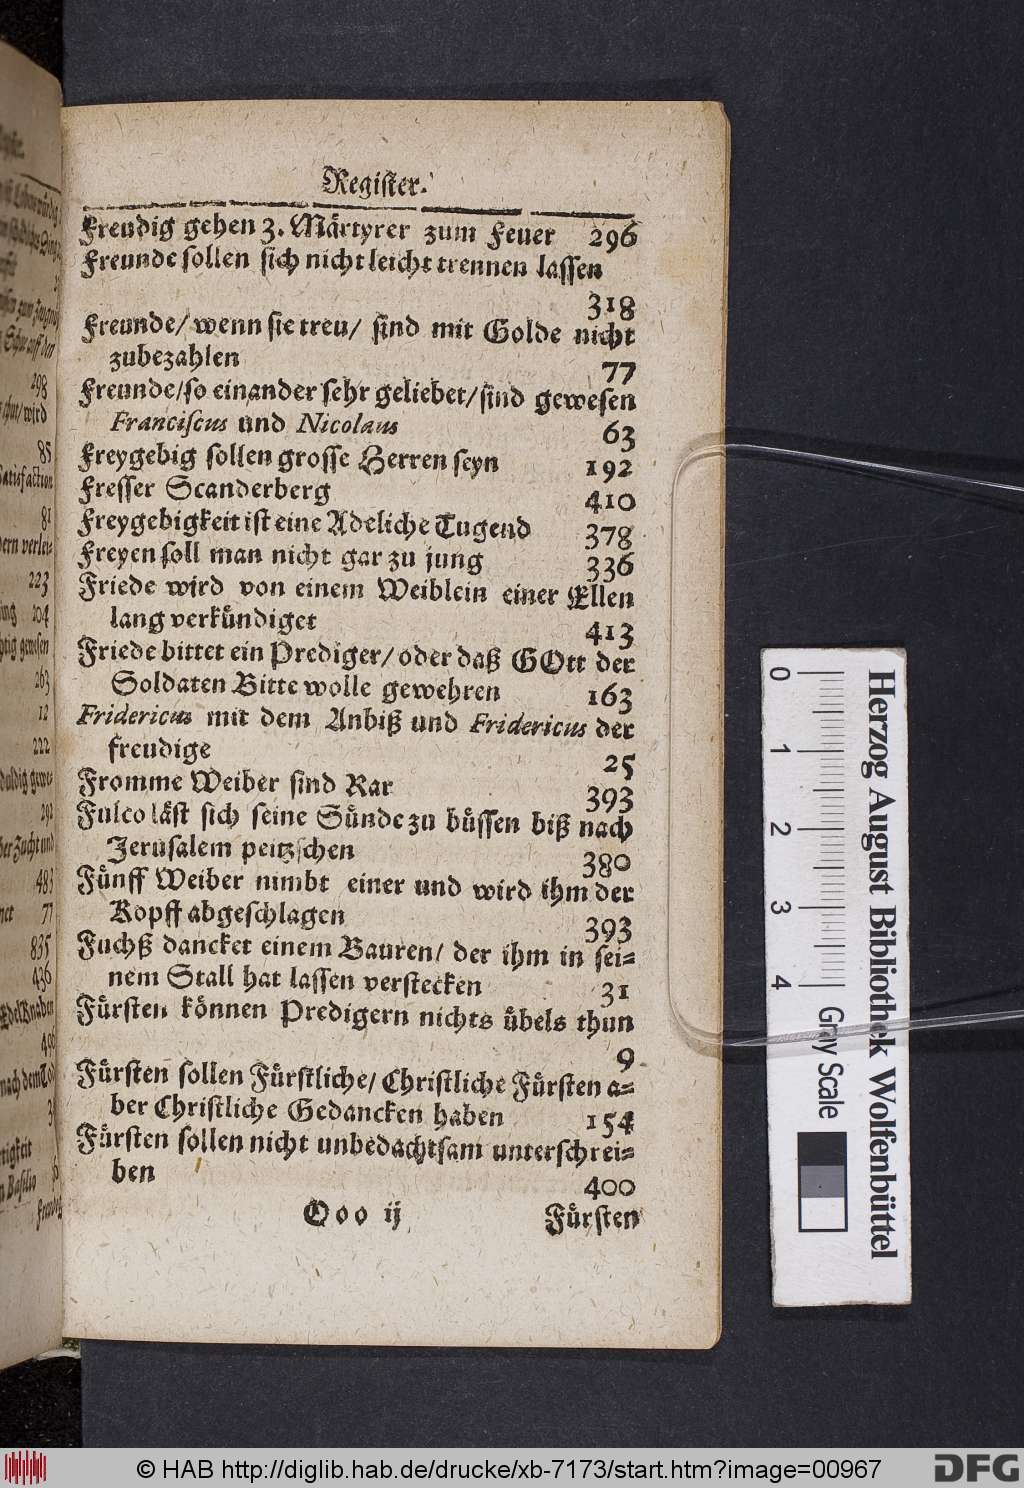 Register.
Freudig gehen 3. Märtyrer zum Feuer 296
Freunde sollen sich nicht leicht trennen lassen
318
Freunde/ wenn sie treu/ sind mit Golde nicht
zubezahlen 77
Freunde/ so einander sehr geliebet/ sind gewesen
Franciscus und Nicolaus 63
Freygebig sollen grosse Herren seyn 192
Fresser Scanderberg 410
Freygebigkeit ist eine Adeliche Tugend 378
Freyen soll man nicht gar zu jung 336
Friede wird von einem Weiblein einer Ellen
lang verkündiget 413
Friede bittet ein Prediger/ oder daß GOtt der
Soldaten Bitte wolle gewehren 163
Fridericus mit dem Anbiß und Fridericus der
freudige 25
Fromme Weiber sind Rar 393
Fulco läst sich seine Sünde zu büssen biß nach
Jerusalem peitzschen 380
Fünff Weiber nimbt einer und wird ihm der
Kopff abgeschlagen 393
Fuchß dancket einem Bauren/ der ihm in sei=
nem Stall hat lassen verstecken 31
Fürsten können Predigern nichts übels thun
9
Fürsten sollen Fürstliche/ Christliche Fürsten a=
ber Christliche Gedancken haben 154
Fürsten sollen nicht unbedachtsam unterschrei=
ben 400
Ooo ij Fürsten
298
85
81
223
204
263
12
222
292
483
77
835
436
Herzog August Bibliothek Wolfenbüttel
0 1 2 3 4
Gray Scale
© HAB http://diglib.hab.de/drucke/xb-7173/start.htm?image=00967
DFG